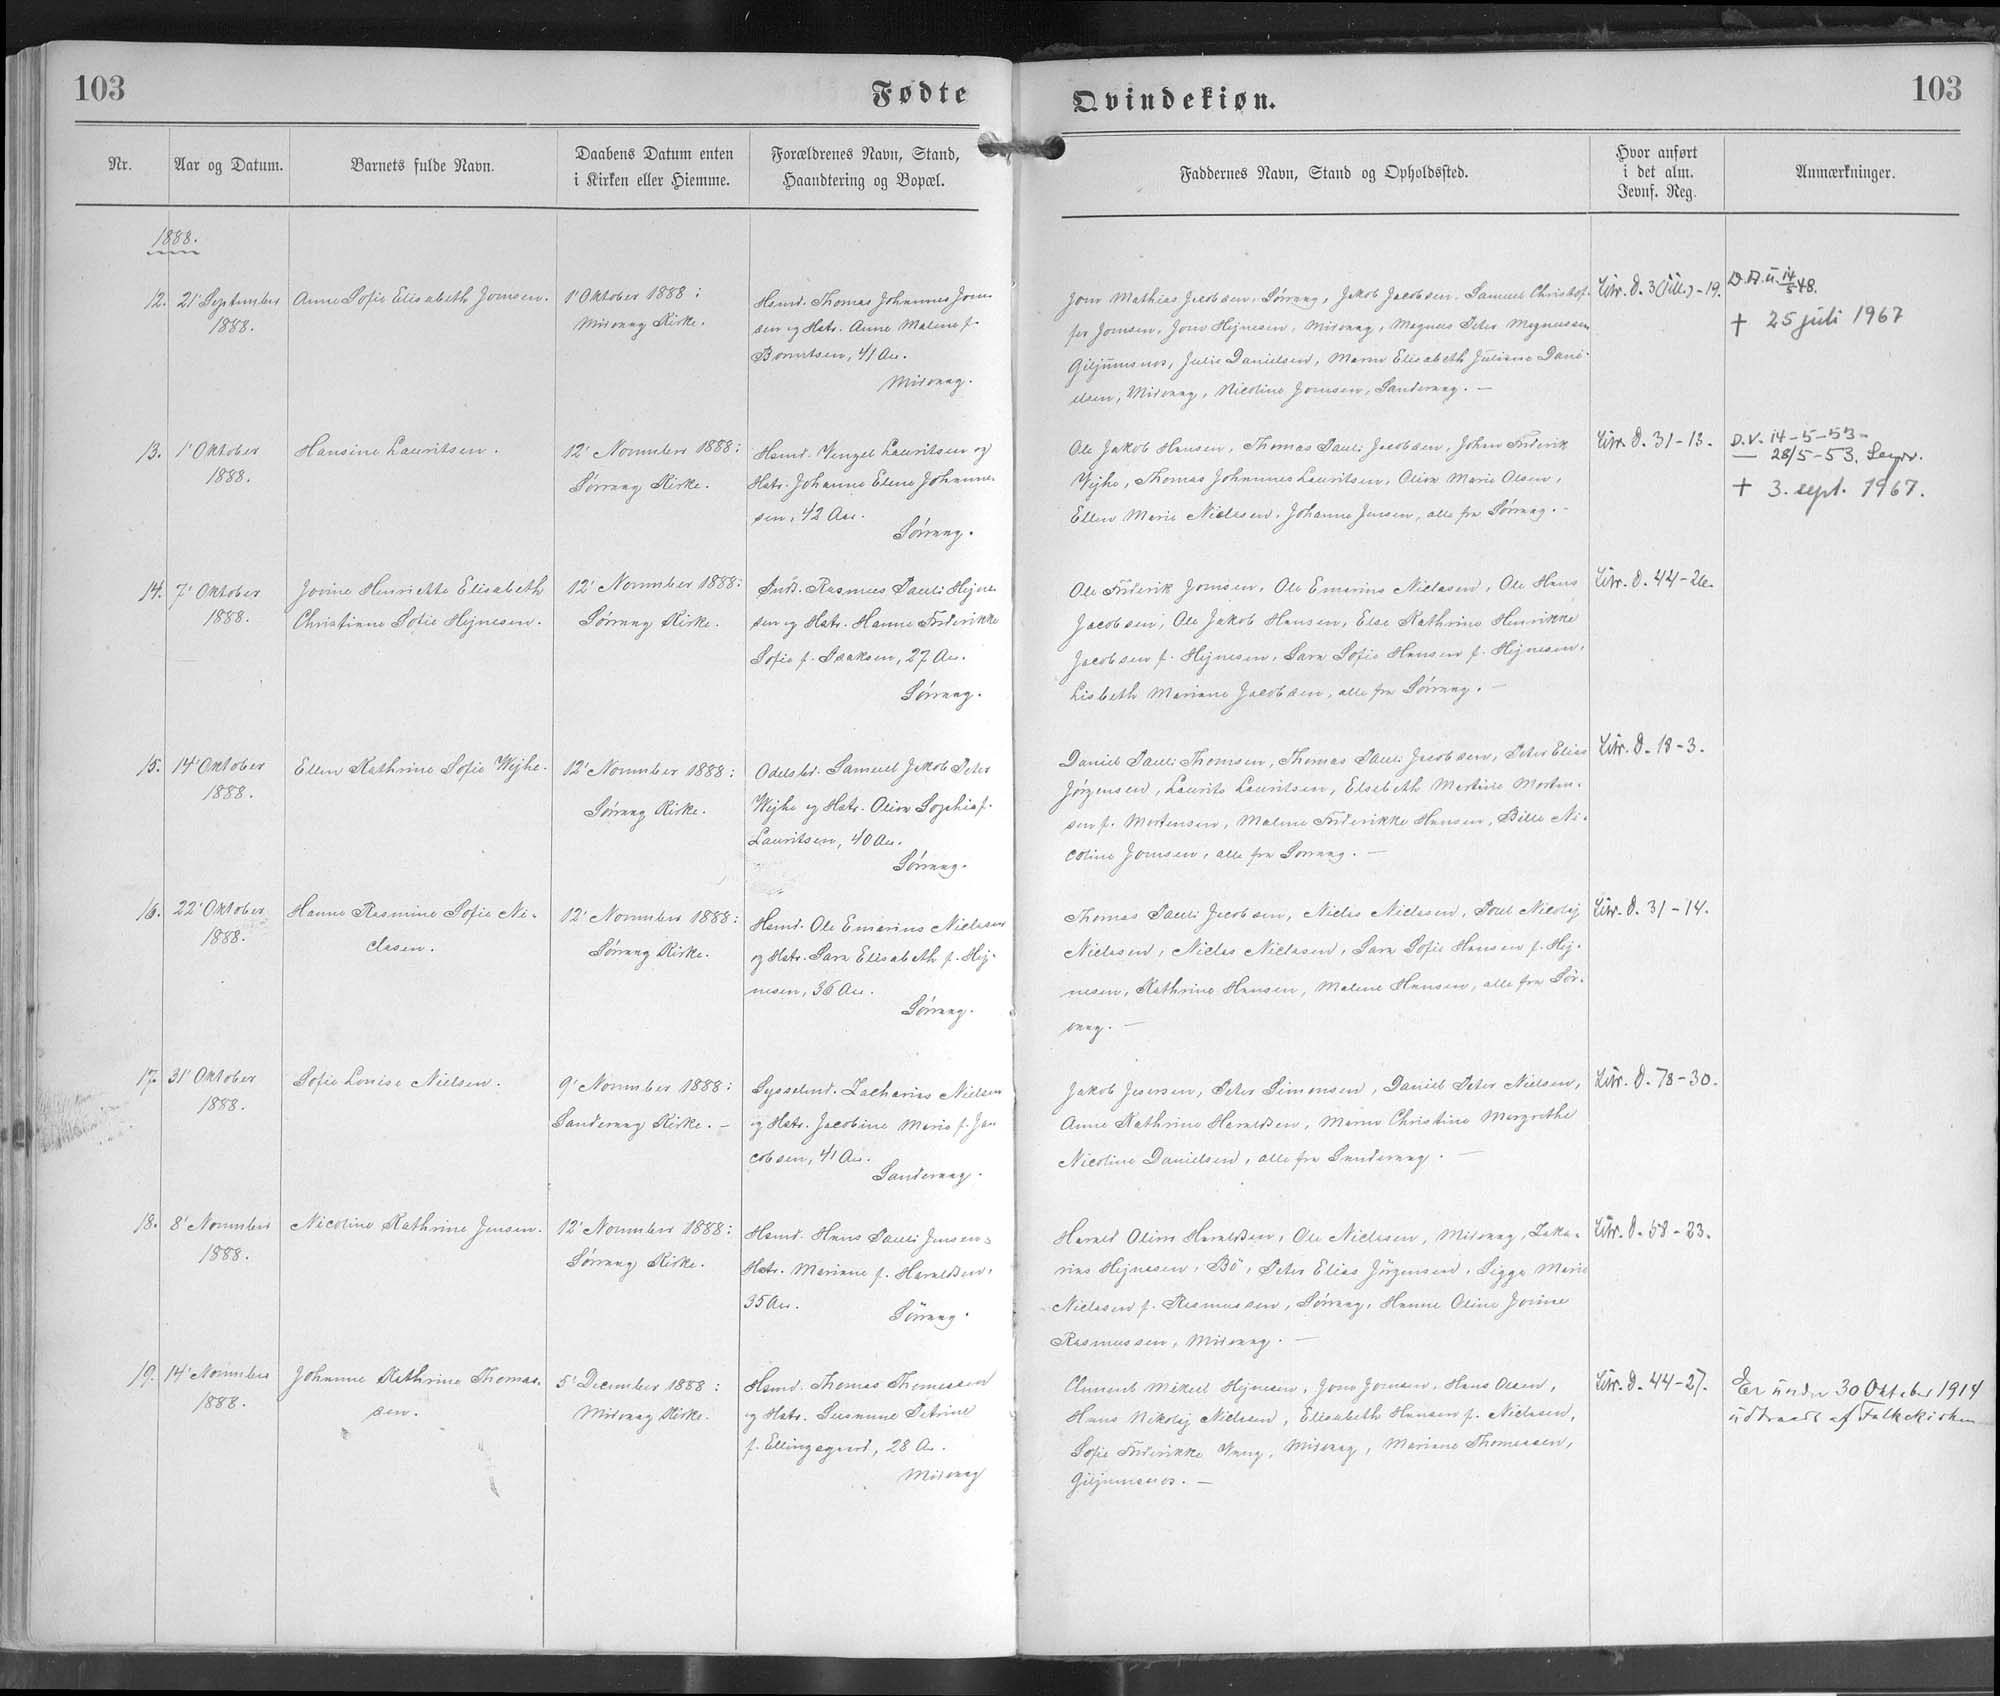 103
Fødte
Qvindekiøn.
103
Nr.
Aar og Datum.
Barnets fulde Navn.
Daabens Datum enten
i Kirken eller Hiemme.
Forældrenes Navn, Stand,
Haandtering og Bopæl.
Faddernes Navn, Stand og Opholdssted.
Hvor anført
i det alm.
Jevnf. Reg.
Anmærkninger.
1888.
12.
21' September
1888.
Anne Sofie Elisabeth Joensen.
1' Oktober 1888:
Midvaag Kirke.
Hsmd. Thomas Johannes Joen-
sen og Hstr. Anne Malene f.
41 Aar.
Midvaag.
Joen Mathias Jacobsen, Sørvaag, Jakob Jacobsen, Samuel Christof-
fer Joensen, Joen Hejnesen, Midvaag, Magnus Peter Magnussen
Giljumsnes, Julie Danielsen, Maren Elisabeth Juliane Dani-
elsen, Midvaag, Nicoline Joensen, Sandevaag. —
Litr. D. 3 (Till.) - 19.
D.A. u. 14/5 48.
† 25 juli 1967
13.
1' Oktober
1888.
Hansine Lauritsen.
12' November 1888:
Sørvaag Kirke.
Hsmd. Venzel Lauritsen og
Hstr. Johanne Elene Johanne-
sen, 42 Aar.
Sørvaag.
Ole Jakob Hansen, Thomas Pauli Jacobsen, Johan Frederik
Vejhe, Thomas Johannes Lauritsen, Oliva Marie Olsen,
Ellen Marie Niclasen, Johanne Jensen, alle fra Sørvaag. -
Litr. D. 31 - 13.
D.V. 14-5-53-
— 28/5-53.
† 3. sept. 1967.
14.
7' Oktober
1888.
Jovine Henriette Elisabeth
Christiane Sofie Hejnesen.
12' November 1888:
Sørvaag Kirke.
Rasmus Pauli Hejne-
sen og Hstr. Hanne Frederikke
Sofie f. Isaksen, 27 Aar.
Sørvaag.
Ole Frederik Joensen, Ole Emarius Niclasen, Ole Hans
Jacobsen, Ole Jakob Hansen, Else Kathrine Henrikke
Jacobsen f. Hejnesen, Sara Sofie Hansen f. Hejnesen,
Lisbeth Mariane Jacobsen, alle fra Sørvaag. —
Litr. D. 44 - 26.
15.
14' Oktober
1888.
Ellen Kathrine Sofie Wejhe.
12' November 1888:
Sørvaag Kirke.
Odelsbd. Samuel Jakob Peter
Wejhe og Hstr. Oliva Sophie f.
Lauritsen, 40 Aar.
Sørvaag.
Daniel Pauli Thomsen, Thomas Pauli Jacobsen, Peter Elias
Jørgensen, Laurits Lauritsen, Elsebeth Martine Morten-
sen f. Mortensen, Malene Frederikke Hansen, Bille Ni-
coline Joensen, alle fra Sørvaag. —
Litr. D. 18 - 3.
16.
22' Oktober
1888.
Hanne Rasmine Sofie Ni-
clasen.
12' November 1888:
Sørvaag Kirke.
Hsmd. Ole Emarius Niclasen
og Hstr. Sara Elisabeth f. Hej-
nesen, 36 Aar.
Sørvaag.
Thomas Pauli Jacobsen, Niclas Niclasen, Poul Nicolaj
Niclasen, Niclas Niclasen, Sara Sofie Hansen f. Hej-
nesen, Kathrine Hansen, Malene Hansen, alle fra Sør-
vaag. —
Litr. D. 31 - 14.
17.
31' Oktober
1888.
Sofie Lovise Nielsen.
9' November 1888:
Sandevaag Kirke. —
Sysselmd. Zacharias Nielsen
og Hstr. Jacobine Marie f. Ja-
cobsen, 41 Aar.
Sandevaag.
Jakob Jespersen, Peter Simonsen, Daniel Peter Nielsen,
Anne Kathrine Haraldsen, Maren Christine Margrethe
Nicoline Danielsen, alle fra Sandevaag. —
Litr. D. 78 - 30.
18.
8' November
1888.
Nicoline Kathrine Jensen.
12' November 1888:
Sørvaag Kirke.
Hsmd. Hans Pauli Jensen,
Hstr. Mariane f. Haraldsen,
35 Aar.
Sørvaag.
Harald Oliver Haraldsen, Ole Niclasen, Midvaag, Zaka-
rias Hejnesen, Bö, Peter Elias Jørgensen, Sigga Marie
Niclasen f. Rasmussen, Sørvaag, Hanne Oline Jovine
Rasmussen, Midvaag. —
Litr. D. 58 - 23.
19.
14' November
1888.
Johanne Kathrine Thomas-
sen.
5' December 1888:
Midvaag Kirke.
Hsmd. Thomas Thomassen
og Hstr. Susanne Petrine
f. Ellingsgaard, 28 Aar.
Midvaag
Clement Mikael Hejnesen, Joen Joensen, Hans Olsen,
Hans Nikolaj Niclasen, Elisabeth Hansen f. Niclasen,
Sofie Frederikke Vang, Midvaag, Mariane Thomassen,
Giljumsnes. —
Litr. D. 44 - 27.
Er under 30 Oktober 1914
udtraadt af Folkekirken